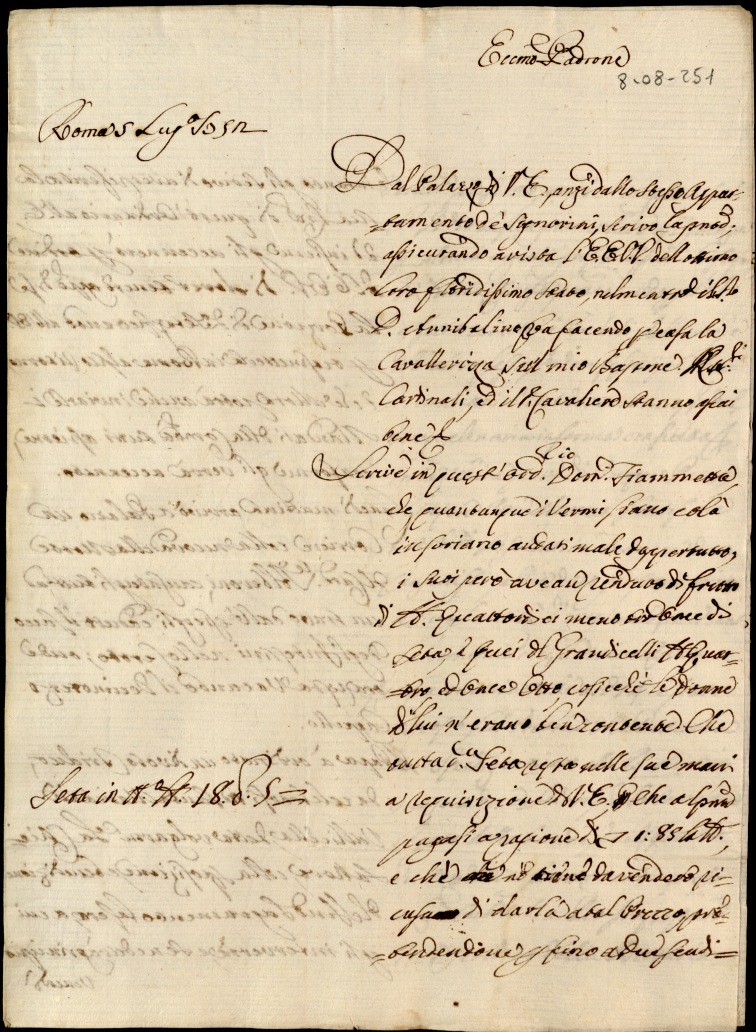 Eccmo Padrone
8-08-251
Roma 5 Lug.o
Dal Palazzo di V. E. anzi dallo stesso Appar-
-tamento de' Signorini, scrivo la pnte,
assicurando a vista l'EE. VV. dell'ottimo
loro floridissimo stato, nel mentre il Sr.
D. Annibalino va facendo per casa la
Cavallerizza sul mio Bastone.
Cardinali, ed il Sr. Cavaliere stanno assai
bene
Scrive in quest' ord.o Dom.co Fiammetta,
che quantunque i Vermi siano colà
in Soriano andati male dappertutto,
i suoi però avean renduto di frutto
tt. Quattordici meno once di
seta, e quei de Grandicelli tt. Quat-
-tro, ed once Otto cosicche le donne
di lui n'erano ben contente. Che
tutta d.a Seta resta nelle sue mani
Seta in tt. 18. 5 =
a requisizione di V. E. Che al pnte
pagasi a ragione di 1: 85 la tt.,
e che chi n' tiene da vendere ri-
cusa di darla a tal Prezzo, pre-
-tendendone fino a due scudi =